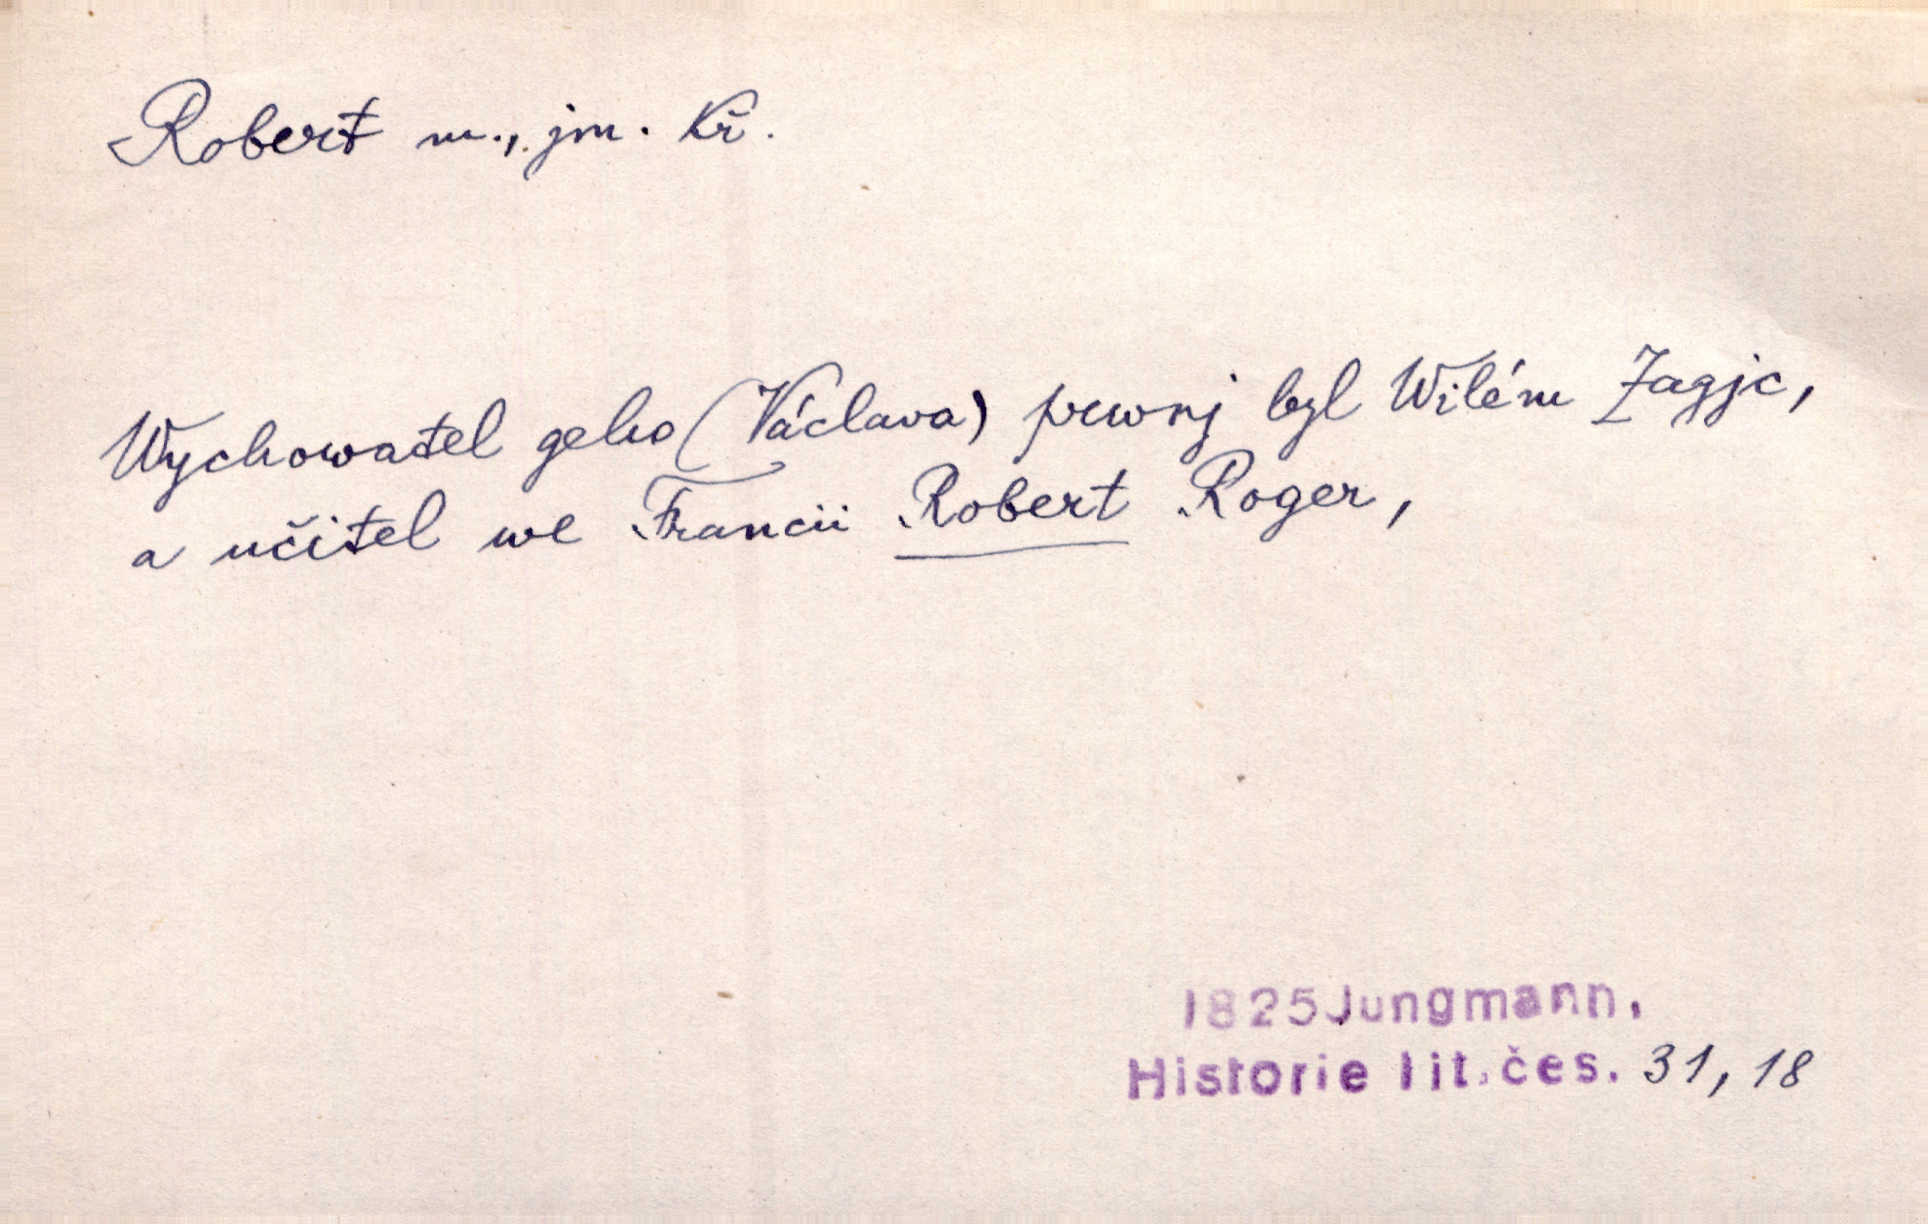 Robert m., jm. kř.
Wychowatel geho (Václava) prwnj byl Wilém Zagjc,
a učitel we Francii Robert Roger,
1825 Jungmann,
Historie lit. čes. 31, 18